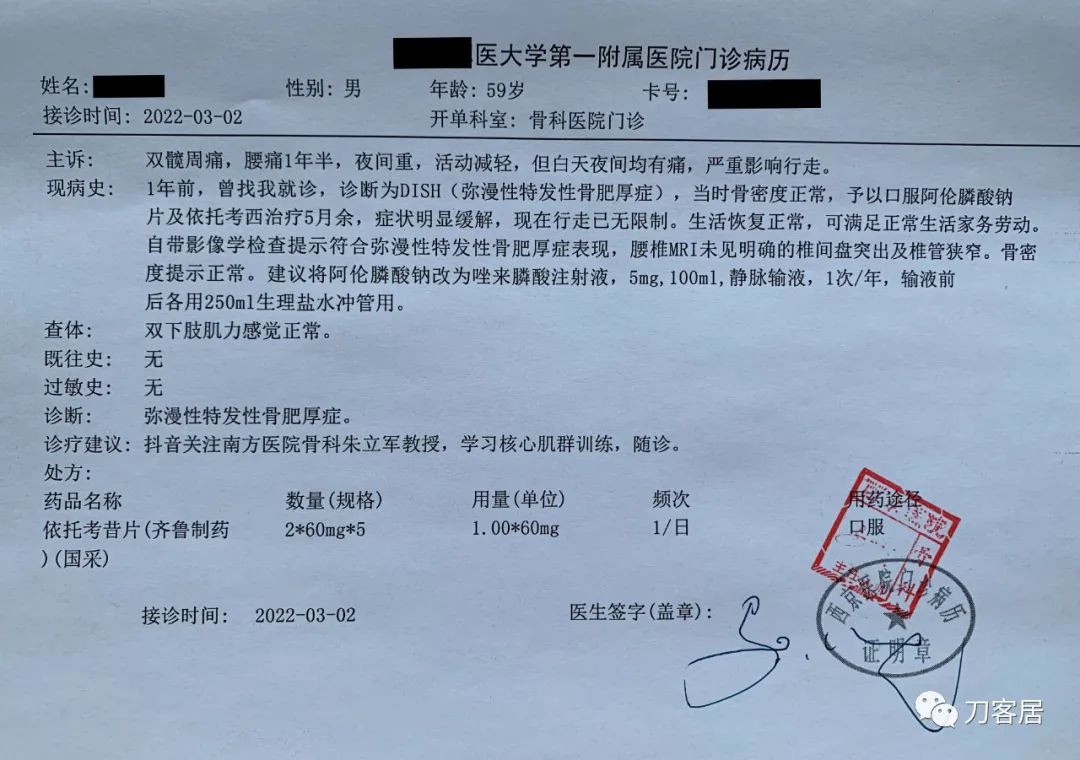 医大学第一附属医院门诊病历
姓名: 性别: 男 年龄: 59岁 卡号:
接诊时间: 2022-03-02 开单科室: 骨科医院门诊
主诉: 双髋周痛，腰痛1年半，夜间重，活动减轻，但白天夜间均有痛，严重影响行走。
现病史: 1年前，曾找我就诊，诊断为DISH（弥漫性特发性骨肥厚症），当时骨密度正常，予以口服阿伦膦酸钠
片及依托考西治疗5月余，症状明显缓解，现在行走已无限制。生活恢复正常，可满足正常生活家务劳动。
自带影像学检查提示符合弥漫性特发性骨肥厚症表现，腰椎MRI未见明确的椎间盘突出及椎管狭窄。骨密
度提示正常。建议将阿伦膦酸钠改为唑来膦酸注射液，5mg,100ml,静脉输液，1次/年，输液前
后各用250ml生理盐水冲管用。
查体: 双下肢肌力感觉正常。
既往史: 无
过敏史: 无
诊断: 弥漫性特发性骨肥厚症。
诊疗建议: 抖音关注南方医院骨科朱立军教授，学习核心肌群训练，随诊。
处方:
药品名称 数量(规格) 用量(单位) 频次 用药途径
依托考昔片(齐鲁制药 2*60mg*5 1.00*60mg 1/日 口服
)(国采)
接诊时间: 2022-03-02 医生签字(盖章):
院门诊病历
证明章
刀客居